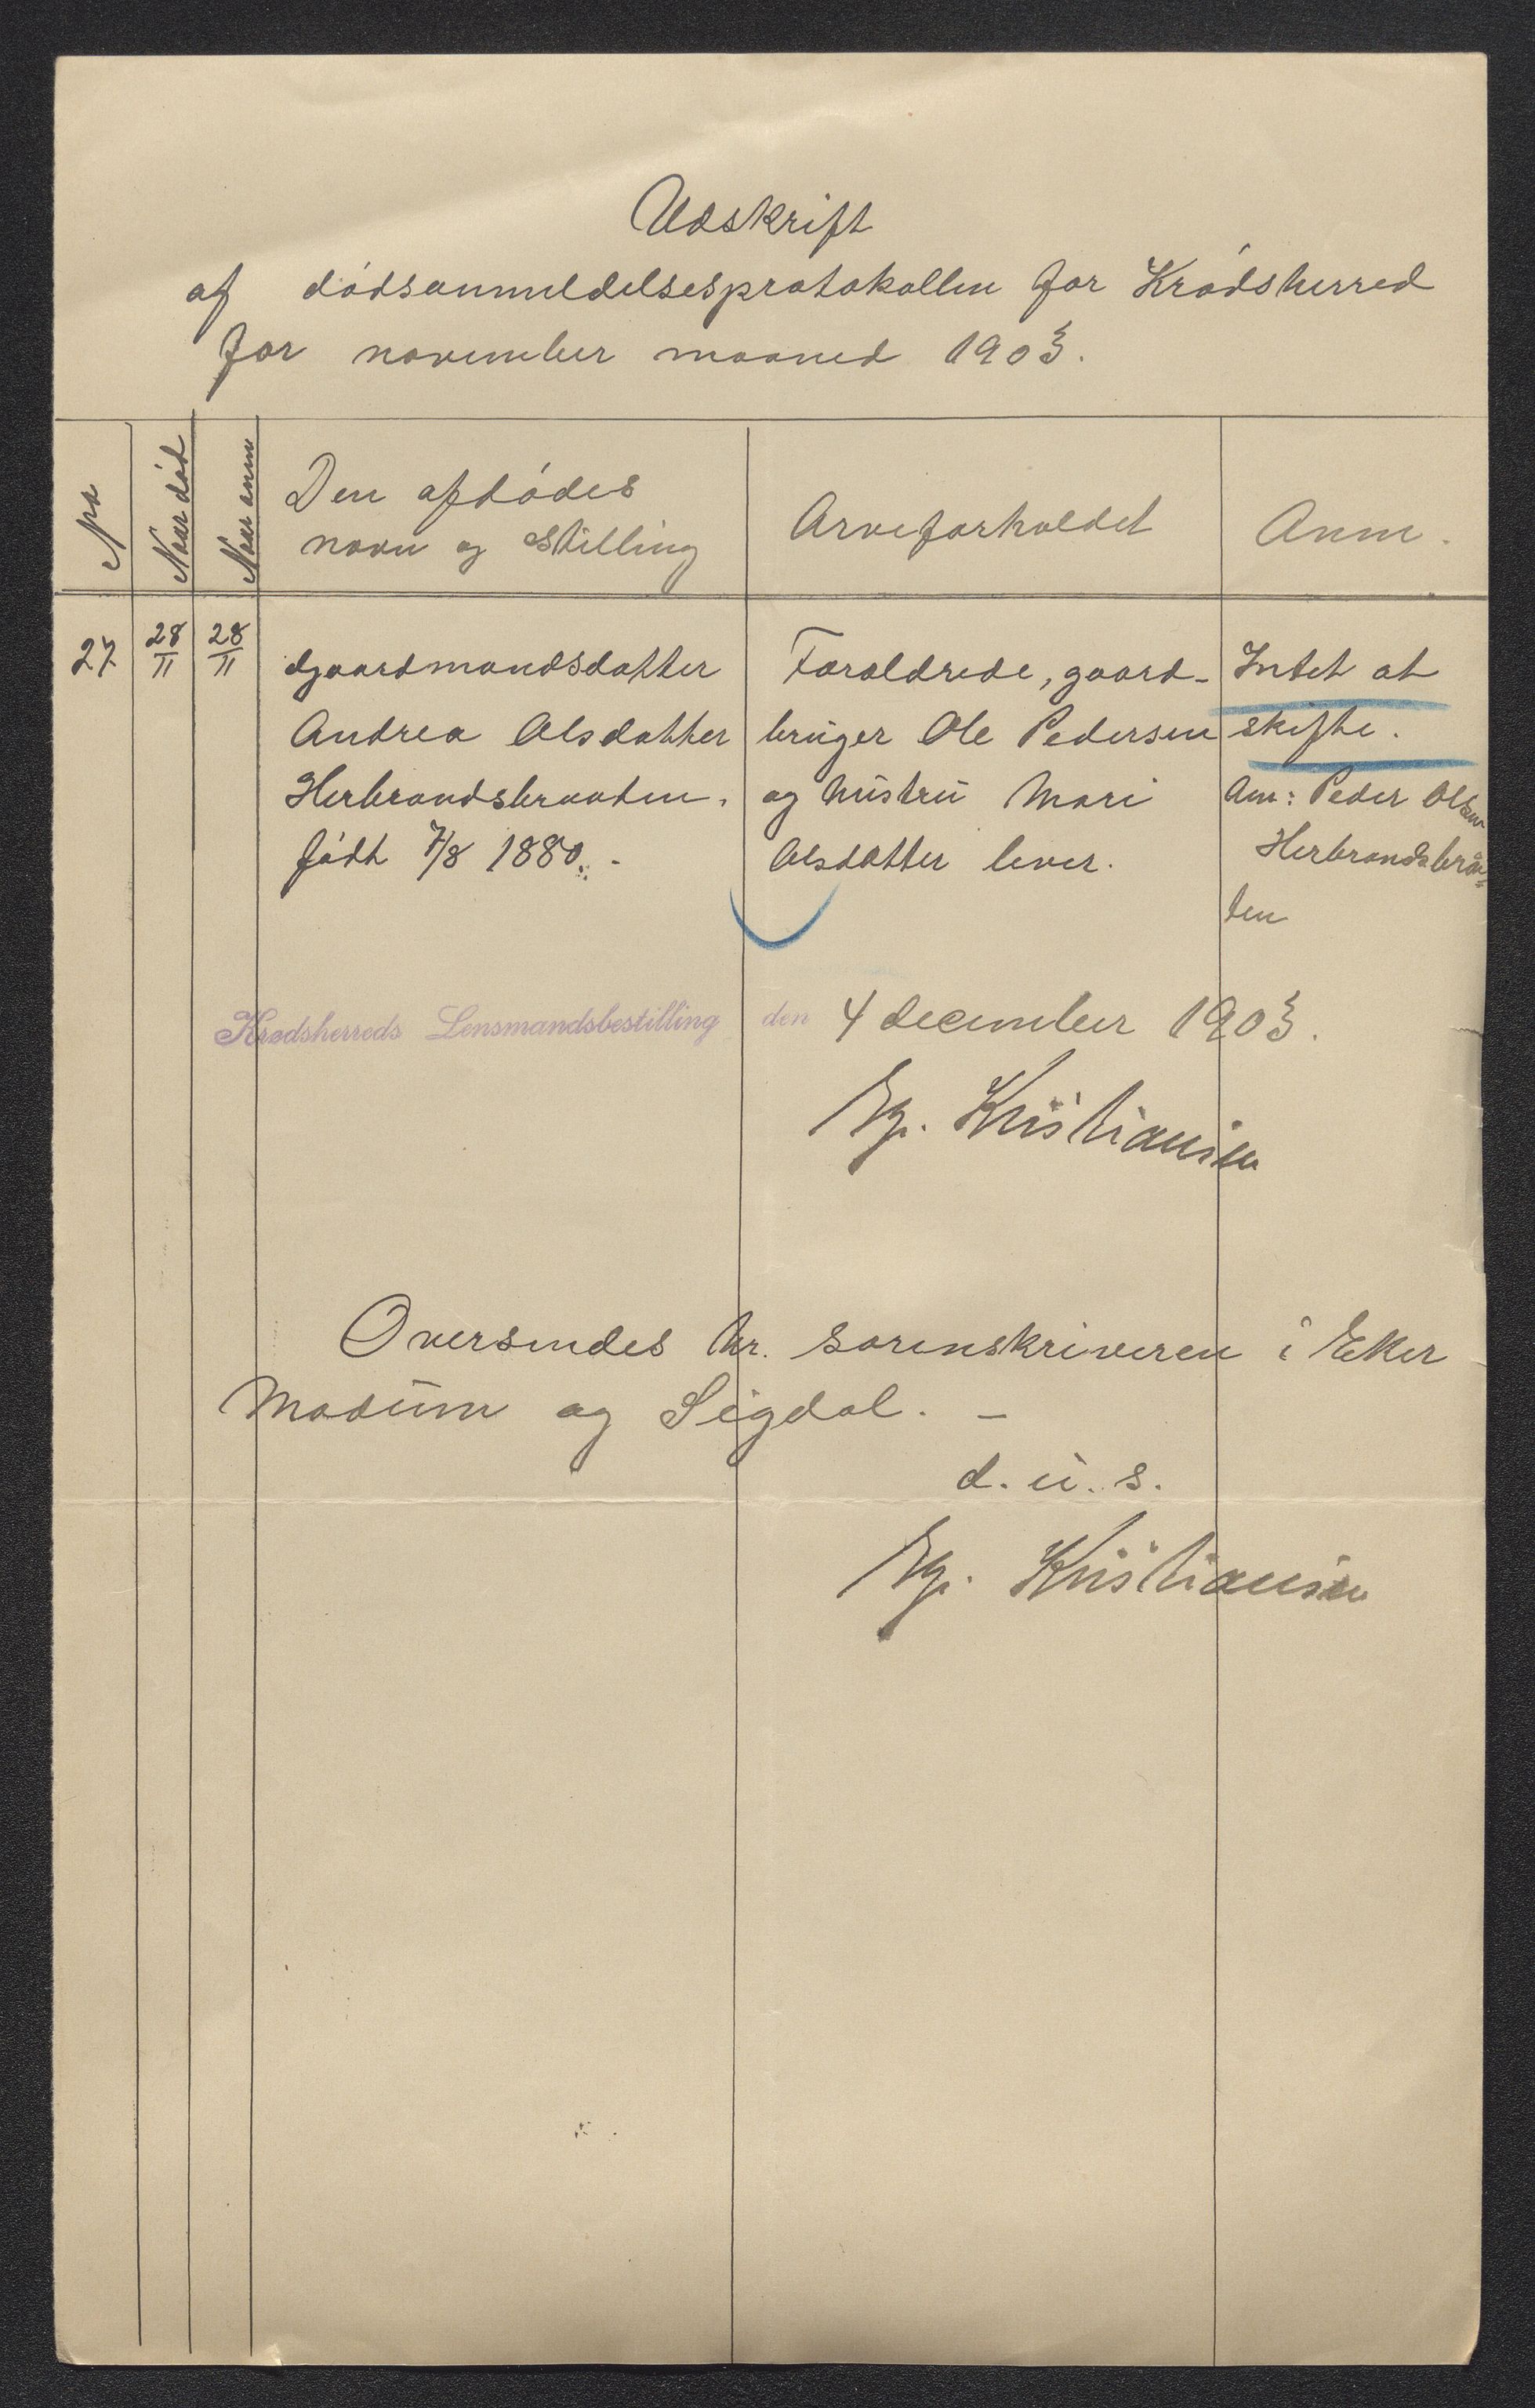 Udskrift
af dødsanmeldelsesprotokollen for Krødsherred
for november maaned 1903.
No
Naar død
Naar anm
Den afdødes
navn og stilling
Arveforholdet
Anm.
27
28/11
28/11
gaardmandsdatter
Andrea Olsdatter
Herbrandsbraaten.
født 7/8 1880. -
Foraldrede, gaard-
bruger Ole Pedersen
og hustru Mari
Olsdatter lever.
Intet at
skifte.
Am: Peder Olsen
Herbrandsbrå=
ten
Krødsherreds Lensmandsbestilling den 4 december 1903.
Kristiansen
Oversendes hr. sorenskriveren i Eker
Modum og Sigdal. -
d. u. s.
Kristiansen